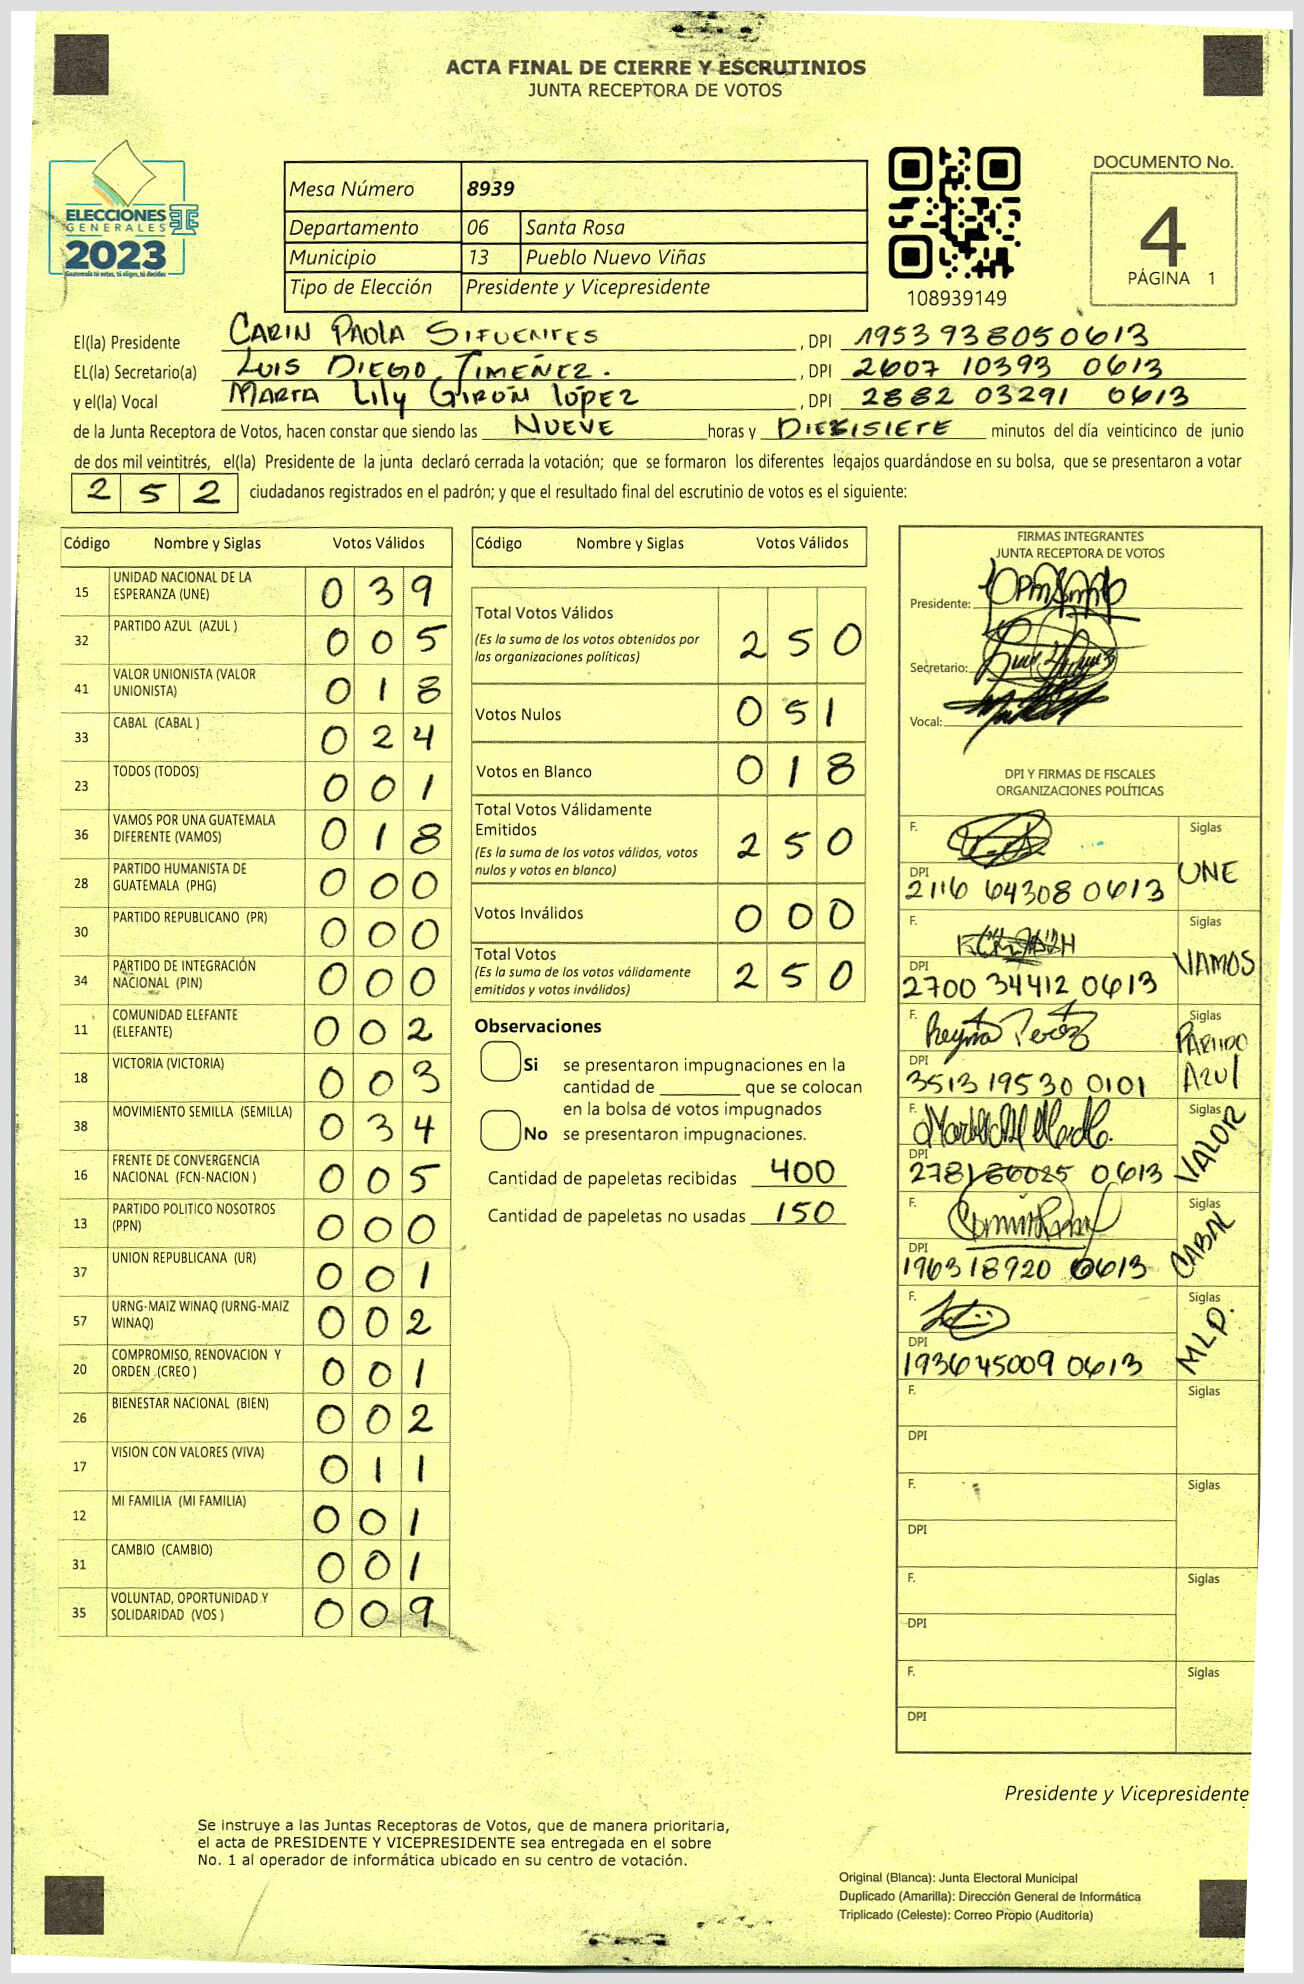 ACTA FINAL DE CIERRE Y ESCRUTINIOS
JUNTA RECEPTORA DE VOTOS
ELECCIONES
GENERALES
2023
Guatemala tú votas, tú eliges, tú decides
Mesa Número 8939
Departamento 06 Santa Rosa
Municipio 13 Pueblo Nuevo Viñas
Tipo de Elección Presidente y Vicepresidente
108939149
DOCUMENTO No.
4
PÁGINA 1
El(la) Presidente CARIN PAOLA SIFUENTES, DPI 1953 938050613
EL(la) Secretario(a) LUIS DIEGO JIMEÑEZ., DPI 2607 10393 0613
y el(la) Vocal MARTA Lily GIRÓN LÓPEZ, DPI 2882 03291 0613
de la Junta Receptora de Votos, hacen constar que siendo las NUEVE horas y DIEXISIETE minutos del día veinticinco de junio
de dos mil veintitrés, el(la) Presidente de la junta declaró cerrada la votación; que se formaron los diferentes legajos guardándose en su bolsa, que se presentaron a votar
252 ciudadanos registrados en el padrón; y que el resultado final del escrutinio de votos es el siguiente:
Código Nombre y Siglas Votos Válidos
15 UNIDAD NACIONAL DE LA ESPERANZA (UNE) 039
32 PARTIDO AZUL (AZUL ) 005
41 VALOR UNIONISTA (VALOR UNIONISTA) 018
33 CABAL (CABAL ) 024
23 TODOS (TODOS) 001
36 VAMOS POR UNA GUATEMALA DIFERENTE (VAMOS) 018
28 PARTIDO HUMANISTA DE GUATEMALA (PHG) 000
30 PARTIDO REPUBLICANO (PR) 000
34 PARTIDO DE INTEGRACIÓN NACIONAL (PIN) 000
11 COMUNIDAD ELEFANTE (ELEFANTE) 002
18 VICTORIA (VICTORIA) 003
38 MOVIMIENTO SEMILLA (SEMILLA) 034
16 FRENTE DE CONVERGENCIA NACIONAL (FCN-NACION ) 005
13 PARTIDO POLITICO NOSOTROS (PPN) 000
37 UNION REPUBLICANA (UR) 001
57 URNG-MAIZ WINAQ (URNG-MAIZ WINAQ) 002
20 COMPROMISO, RENOVACION Y ORDEN (CREO ) 001
26 BIENESTAR NACIONAL (BIEN) 002
17 VISION CON VALORES (VIVA) 011
12 MI FAMILIA (MI FAMILIA) 001
31 CAMBIO (CAMBIO) 001
35 VOLUNTAD, OPORTUNIDAD Y SOLIDARIDAD (VOS ) 009
Código Nombre y Siglas Votos Válidos
Total Votos Válidos 250
(Es la suma de los votos obtenidos por
las organizaciones políticas)
Votos Nulos 051
Votos en Blanco 018
Total Votos Válidamente
Emitidos 250
(Es la suma de los votos válidos, votos
nulos y votos en blanco)
Votos Inválidos 000
Total Votos 250
(Es la suma de los votos válidamente
emitidos y votos inválidos)
Observaciones
Si se presentaron impugnaciones en la
cantidad de ________ que se colocan
en la bolsa de votos impugnados
No se presentaron impugnaciones.
Cantidad de papeletas recibidas 400
Cantidad de papeletas no usadas 150
FIRMAS INTEGRANTES
JUNTA RECEPTORA DE VOTOS
Presidente:
Secretario:
Vocal:
DPI Y FIRMAS DE FISCALES
ORGANIZACIONES POLÍTICAS
F. Siglas
DPI UNE
2116 64308 0613
F. Siglas
DPI VAMOS
2700 34412 0613
F. Reyna Peréz Siglas
DPI PARTIDO AZUl
3513 19530 0101
F. Siglas
DPI VALOR
2781 60025 0613
F. Siglas
DPI CABAL
1963 18920 0613
F. Siglas
DPI MLP.
1936450090613
F. Siglas
DPI
F. Siglas
DPI
F. Siglas
DPI
F. Siglas
DPI
Presidente y Vicepresidente
Se instruye a las Juntas Receptoras de Votos, que de manera prioritaria,
el acta de PRESIDENTE Y VICEPRESIDENTE sea entregada en el sobre
No. 1 al operador de informática ubicado en su centro de votación.
Original (Blanca): Junta Electoral Municipal
Duplicado (Amarilla): Dirección General de Informática
Triplicado (Celeste): Correo Propio (Auditoría)